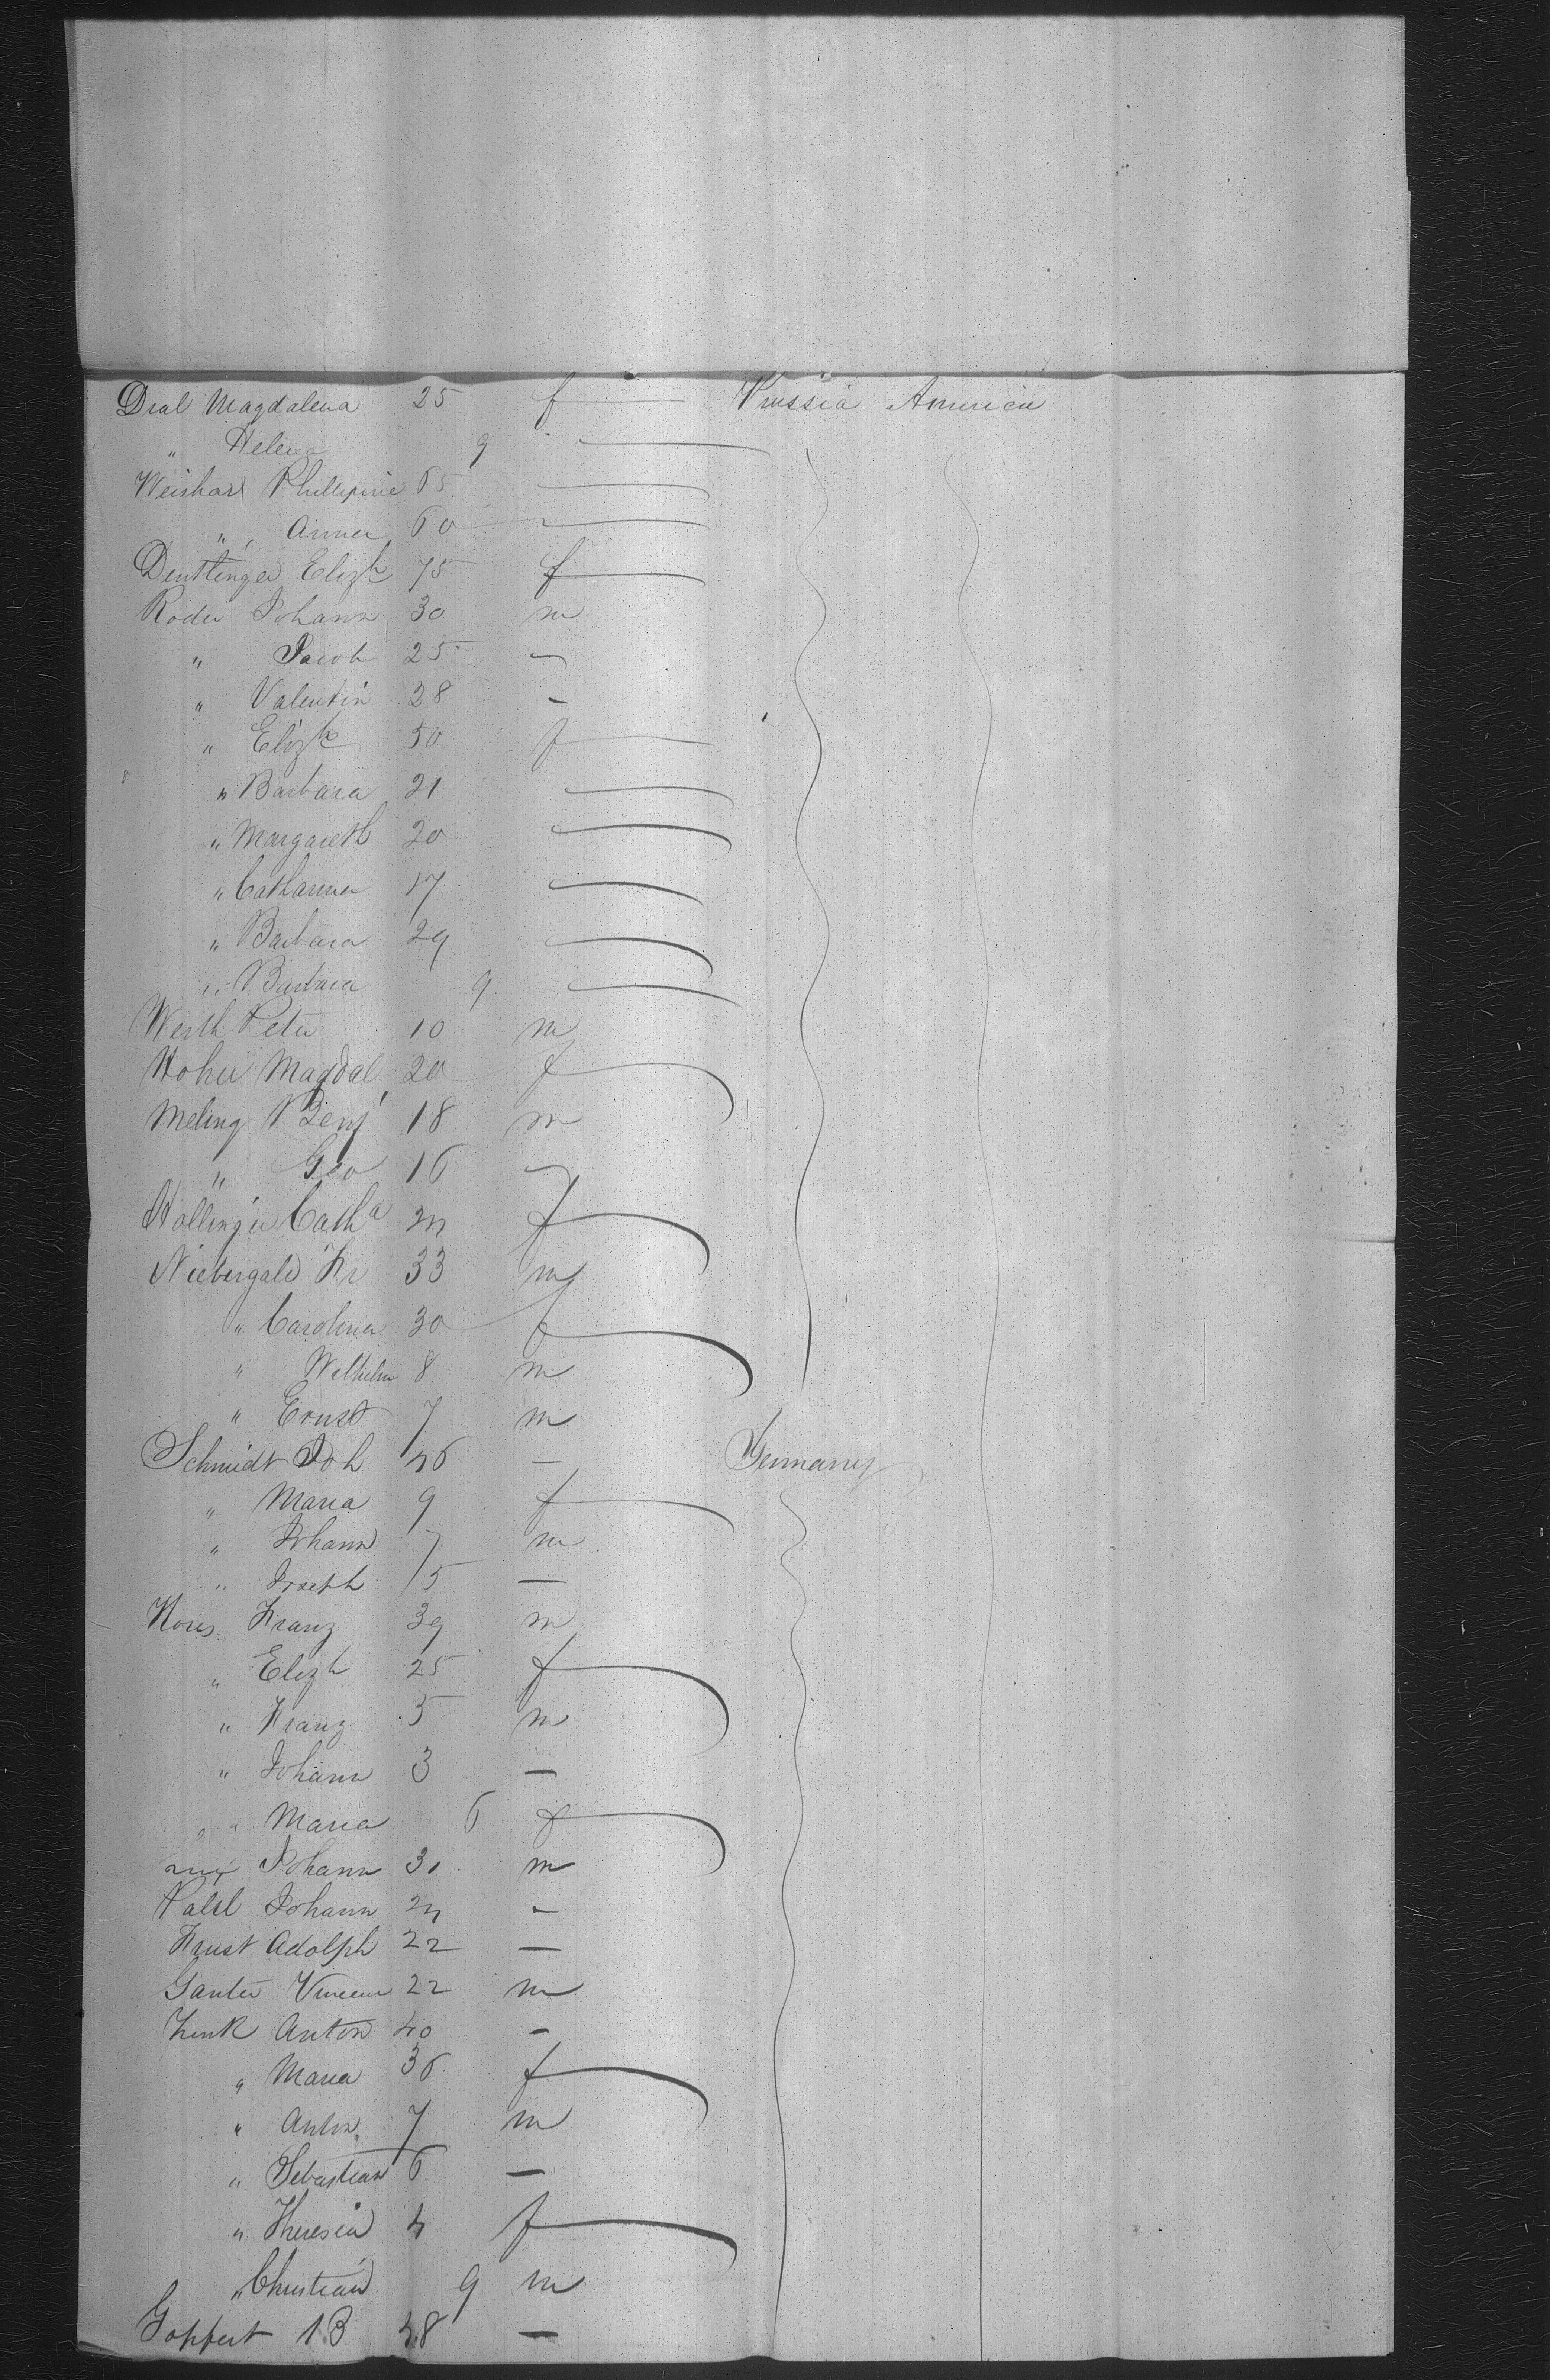 Dial Magdalena 25 f Prussia America
" Helena 9
Weishar Phillipine 65
" Anna 60
Deutlinger Elizh 75 f
Röder Johann 30 m
" Jacob 25 -
" Valentin 28 -
" Elizh 50 f
" Barbara 21
" Margareth 20
" Catharina 17
" Barbara 29
" Barbara 9
Werth Peter 10 m
Hoher Magdal 20 f
Meling Benj 18 m
" Geo 16
Hollinger Catha 24 f
Niebergald Fr 33 m
" Carolina 30 f
" Wilhelm 8 m
" Ernst 7 m
Schmidt Joh 46 - Germany
" Maria 9 f
" Johann 7 m
" Joseph 15 -
Franz 39 m
" Elizh 25 f
" Franz 5 m
" Johann 3 -
" " Maria 6 f
Johann 31 m
Johann 24 -
Adolph 22 -
Ganter 22 m
Anton 40 -
" Maria 36 f
" Anton 7 m
" Sebastian 6 -
" Theresia 4 f
" Christian 9 m
Goppert 48 -